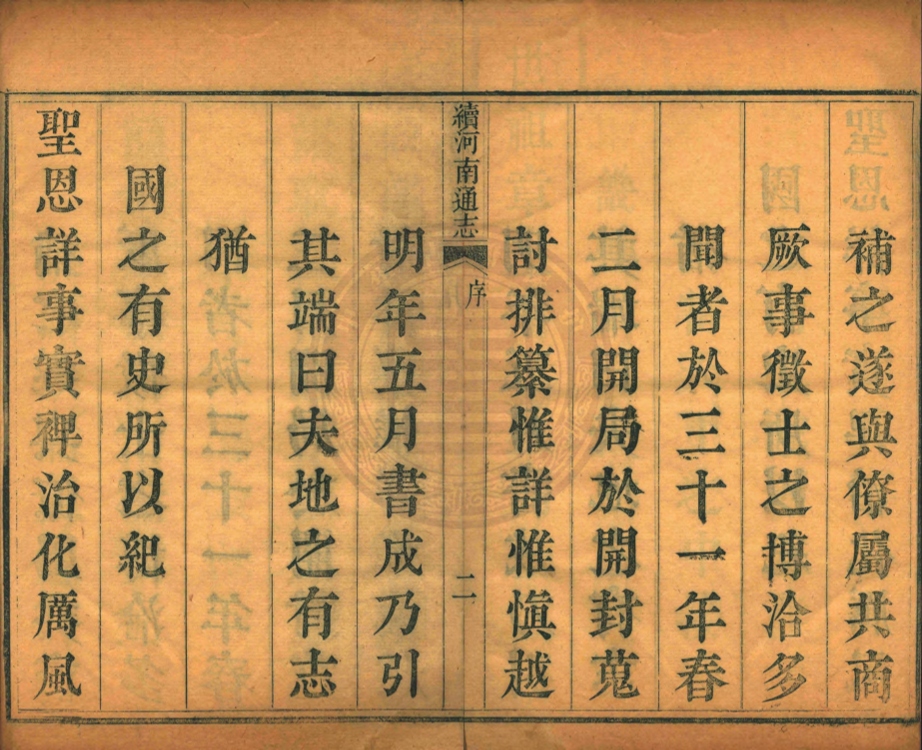 補之遂與僚屬共商
厥事徵士之博洽多
聞者於三十一年春
二月開局於開封蒐
討排纂惟詳惟愼越
續河南通志 序 二
明年五月書成乃引
其端曰夫地之有志
猶
國之有史所以紀
聖恩詳事實裨治化厲風